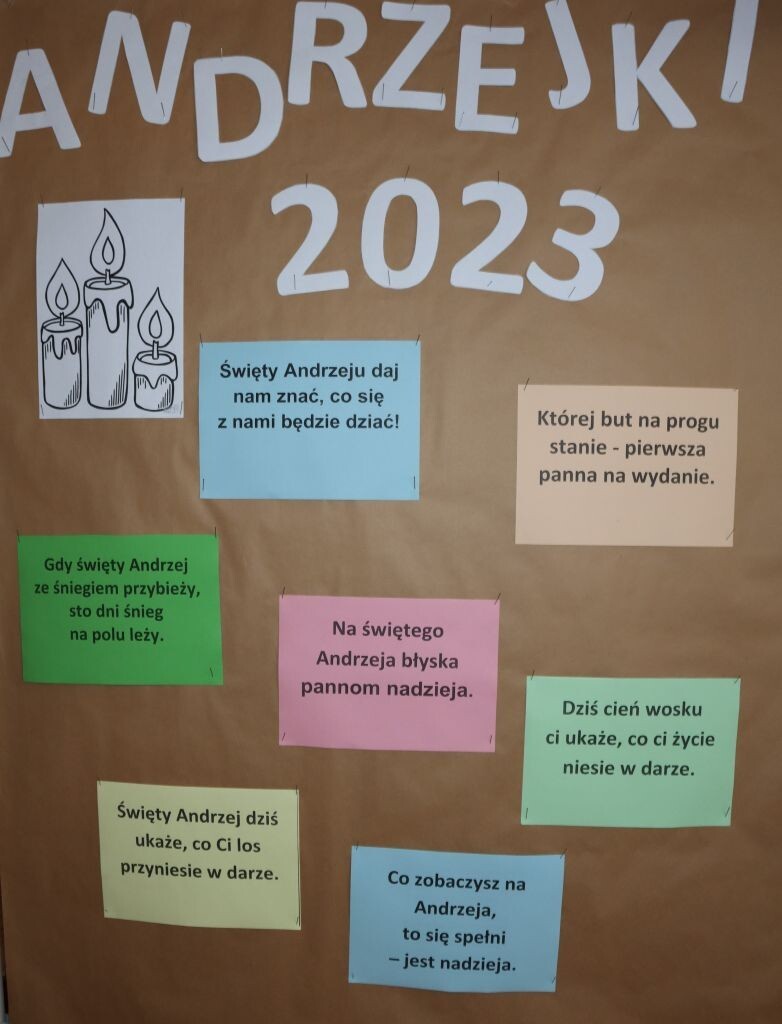 ANDRZEJKI
2023
Święty Andrzeju daj
nam znać, co się
z nami będzie dziać!
Której but na progu
stanie - pierwsza
panna na wydanie.
Gdy święty Andrzej
ze śniegiem przybieży,
sto dni śnieg
na polu leży.
Na świętego
Andrzeja błyska
pannom nadzieja.
Dziś cień wosku
ci ukaże, co ci życie
niesie w darze.
Święty Andrzej dziś
ukaże, co Ci los
przyniesie w darze.
Co zobaczysz na
Andrzeja,
to się spełni
– jest nadzieja.